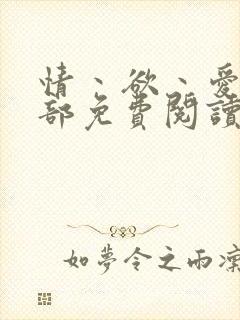 情、欲、愛
部免費閱讀
如夢令之雨凜